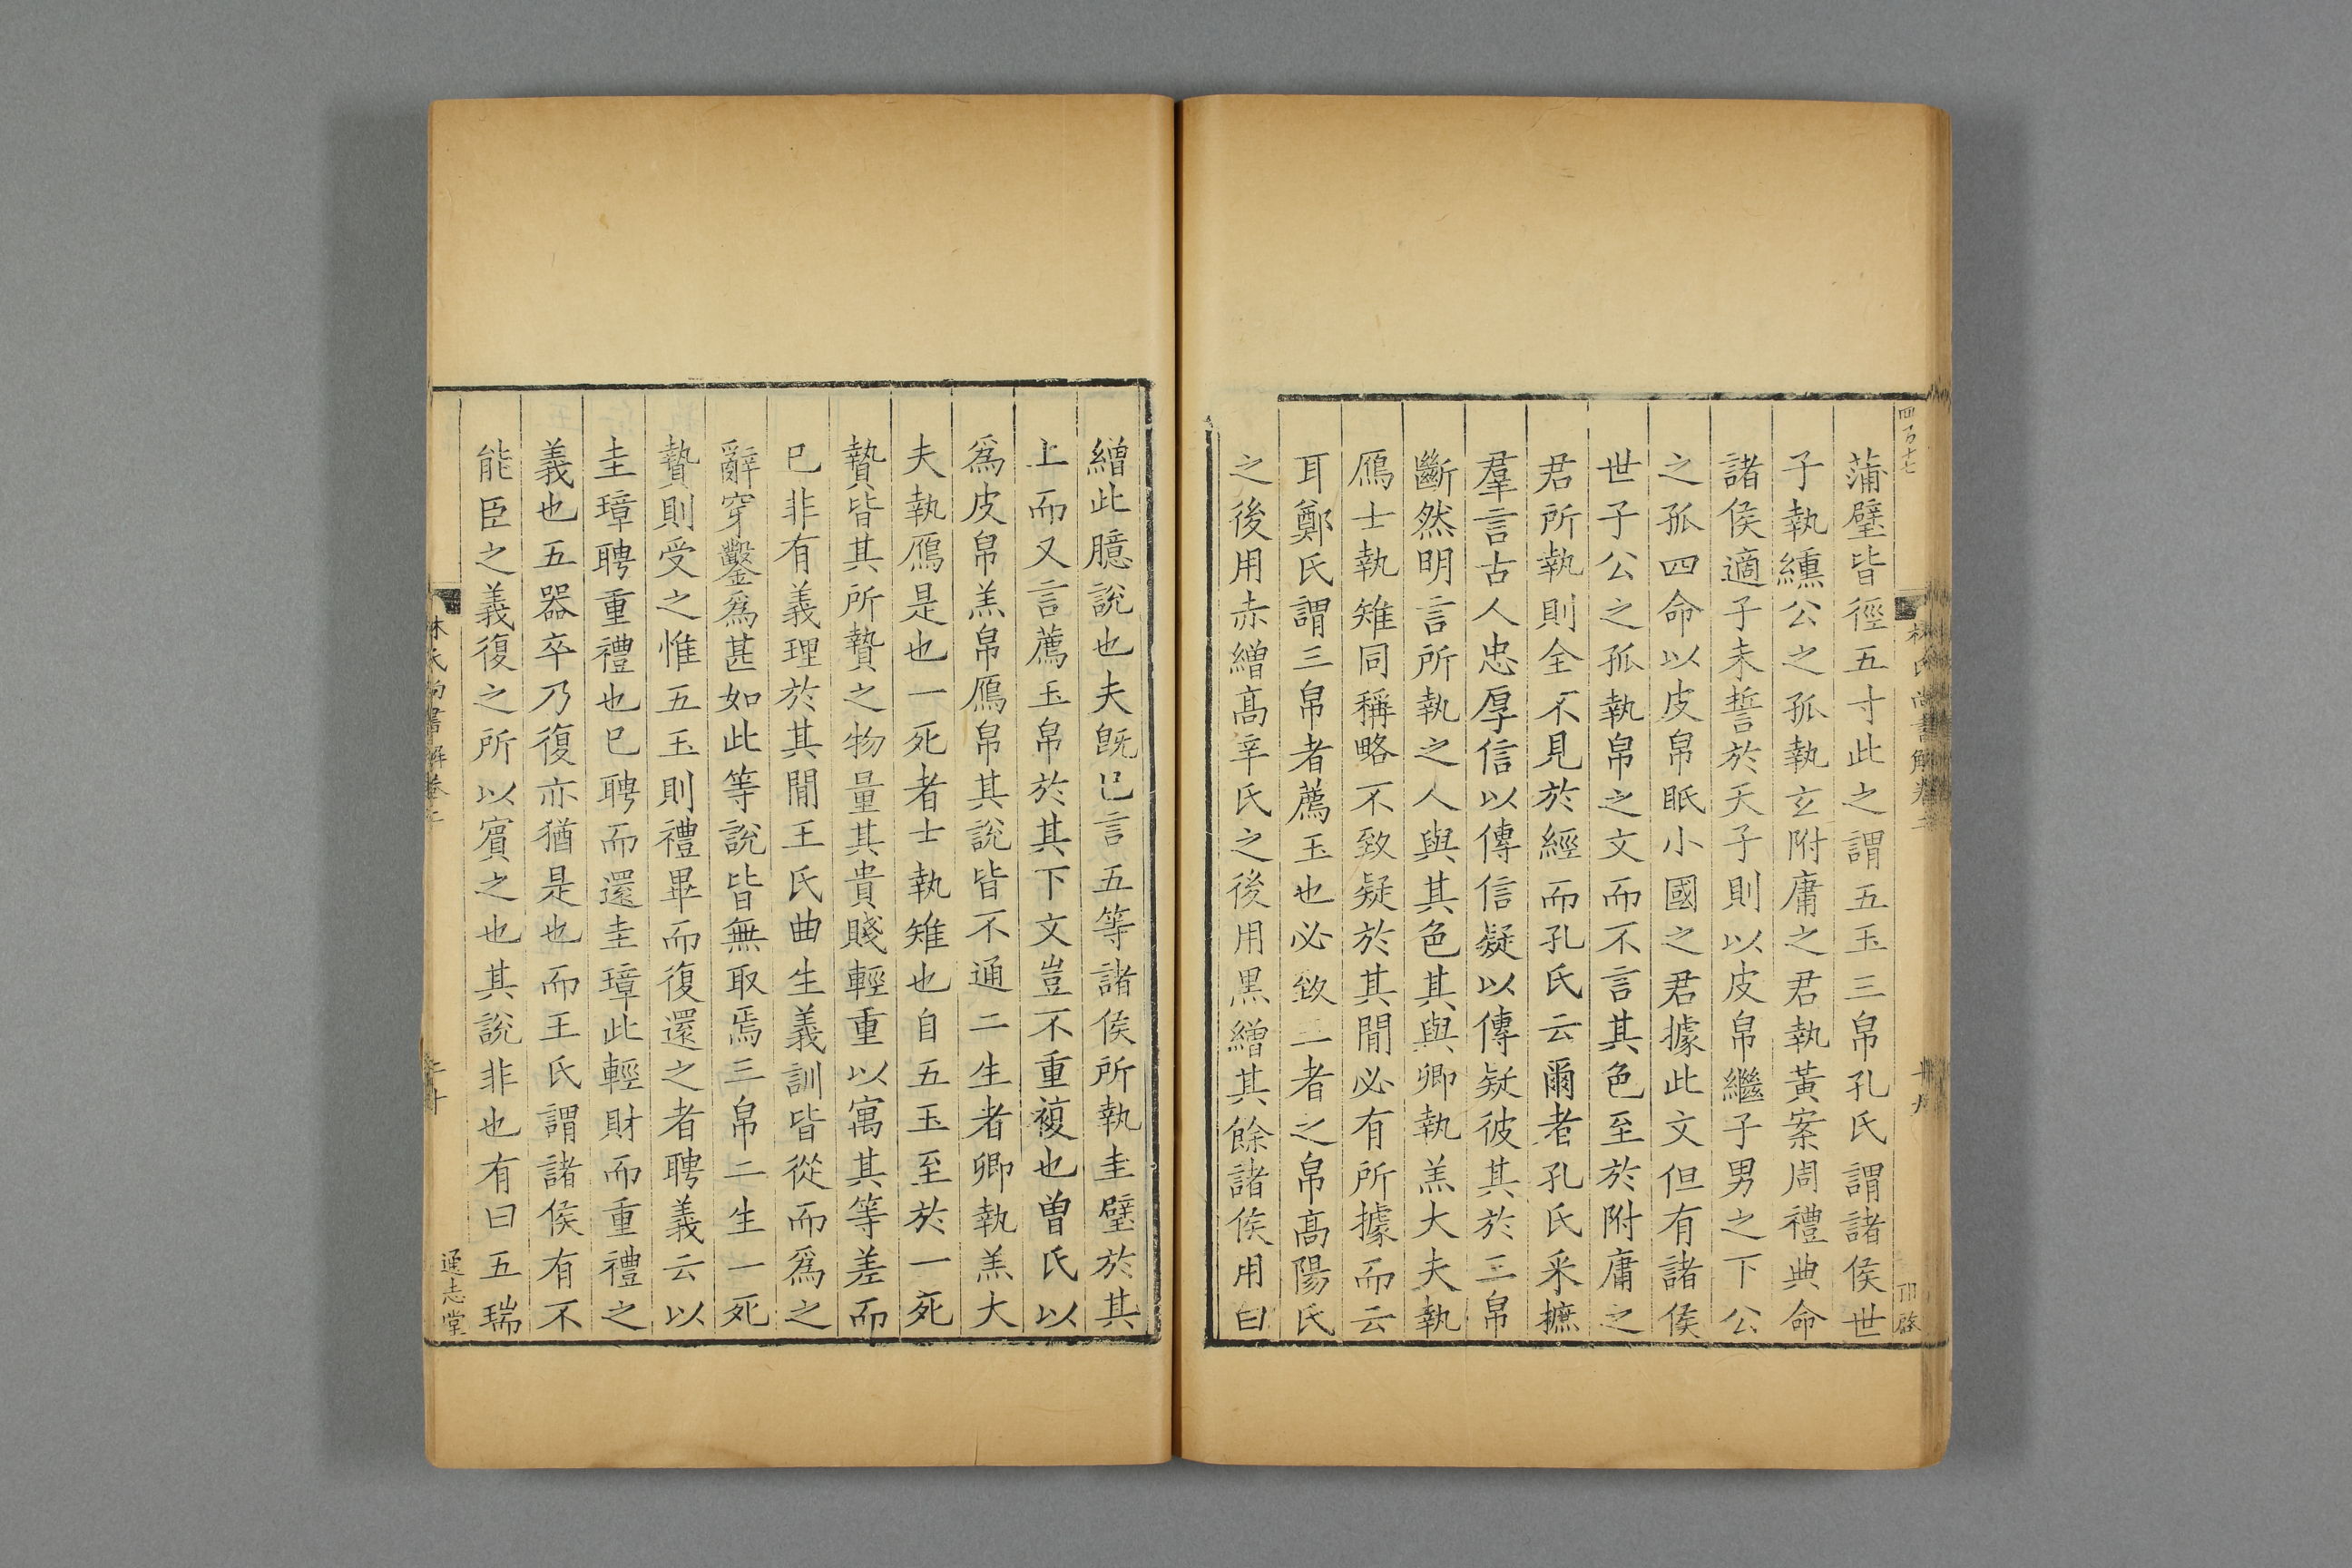 四百十七
蒲璧皆徑五寸此之謂五玉三帛孔氏謂諸侯世
子執纁公之孤執玄附庸之君執黃案周禮典命
諸侯適子未誓於天子則以皮帛繼子男之下公
之孤四命以皮帛眡小國之君據此文但有諸侯
世子公之孤執帛之文而不言其色至於附庸之
君所執則全不見於經而孔氏云爾者孔氏釆摭
羣言古人忠厚信以傳信疑以傳疑彼其於三帛
斷然明言所執之人與其色其與卿執羔大夫執
鴈士執雉同稱略不致疑於其閒必有所據而云
耳鄭氏謂三帛者薦玉也必致三者之帛高陽氏
之後用赤繒高辛氏之後用黒繒其餘諸侯用白
繒此臆說也夫旣已言五等諸侯所執圭璧於其
上而又言薦玉帛於其下文豈不重複也曾氏以
爲皮帛羔帛鴈帛其說皆不通二生者卿執羔大
夫執鴈是也一死者士執雉也自五玉至於一死
贄皆其所贄之物量其貴賤輕重以寓其等差而
已非有義理於其閒王氏曲生義訓皆從而爲之
辭穿鑿爲甚如此等說皆無取焉三帛二生一死
贄則受之惟五玉則禮畢而復還之者聘義云以
圭璋聘重禮也已聘而還圭璋此輕財而重禮之
義也五器卒乃復亦猶是也而王氏謂諸侯有不
能臣之義復之所以賓之也其說非也有曰五瑞
林氏尚書解卷二
通志堂